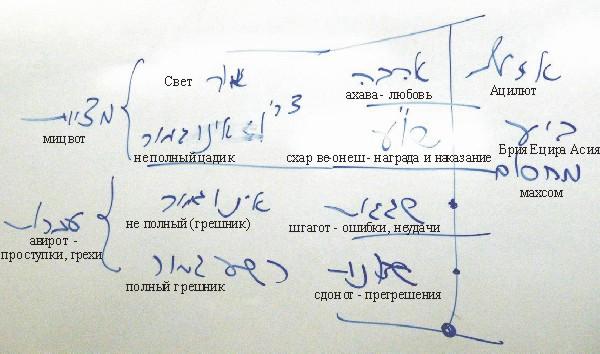 אור
אהבה
אצילות
Свет
ахава - любовь
Ацилют
מצוות
צדיק
אינו גמור
בי"ע
мицвот
неполный цадик
схар ве-онеш - награда и наказание
Брия Ецира Асия
מחסום
махсом
אינו גמור
שגגות
עברות
не полный (грешник)
шгагот - ошибки, неудачи
авирот -
проступки, грехи
רשע גמור
полный грешник
сдонот - прегрешения